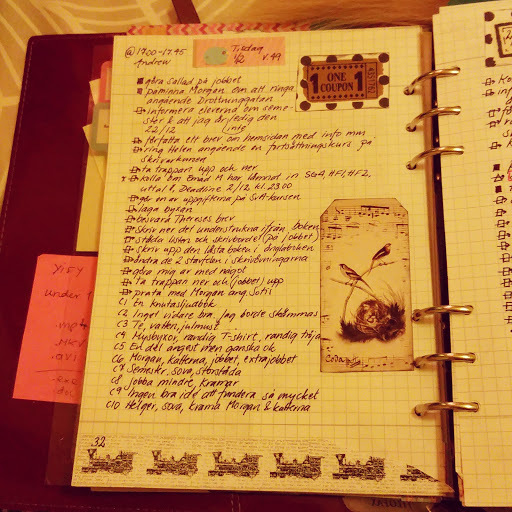 @ 17.00-17.45
Andrew
Tisdag
1/2 v.49
1 ONE 1
COUPON
göra sallad på jobbet
påminna Morgan om att ringa
angående Drottninggatan
informera eleverna om seme-
ster & att jag är ledig den
22/12 (inte)
författa ett brev om hemsidan med info mm
ring Helen angående en fortsättningskurs på
skrivarkursen
ta trappan upp och ner
kolla om Emad M har lämnat in SG4, HF1, HF2,
uttal 8, Deadline 2/12 kl. 23.00
gör en av uppgifterna på SFI-kursen
laga byxan
besvara Thereses brev
skriv ner det understrukna ifrån boken
städa listan och skrivbordet (på jobbet)
skriv upp den lästa boken i
ändra de 2 startfilen i skrivövningarna
göra mig av med något
ta trappan ner och (jobbet) upp
prata med Morgan ang.
C1 En knutasljudbok
C2 Inget vidare bra. Jag borde skämmas
C3 Te, vatten, julmust
C4 Mysbyxor, randig T-shirt, randig tröja
C5 En del ångest men ganska ok
C6 Morgan, katterna, jobbet, extrajobbet
C7 Semester, sova, storstäda
C8 Jobba mindre, kramar
C9 Ingen bra idé att fundera så mycket
C10 Helger, sova, krama Morgan & katterna
32
YIFY
under
.mp4
.MKV
.avi
.exe